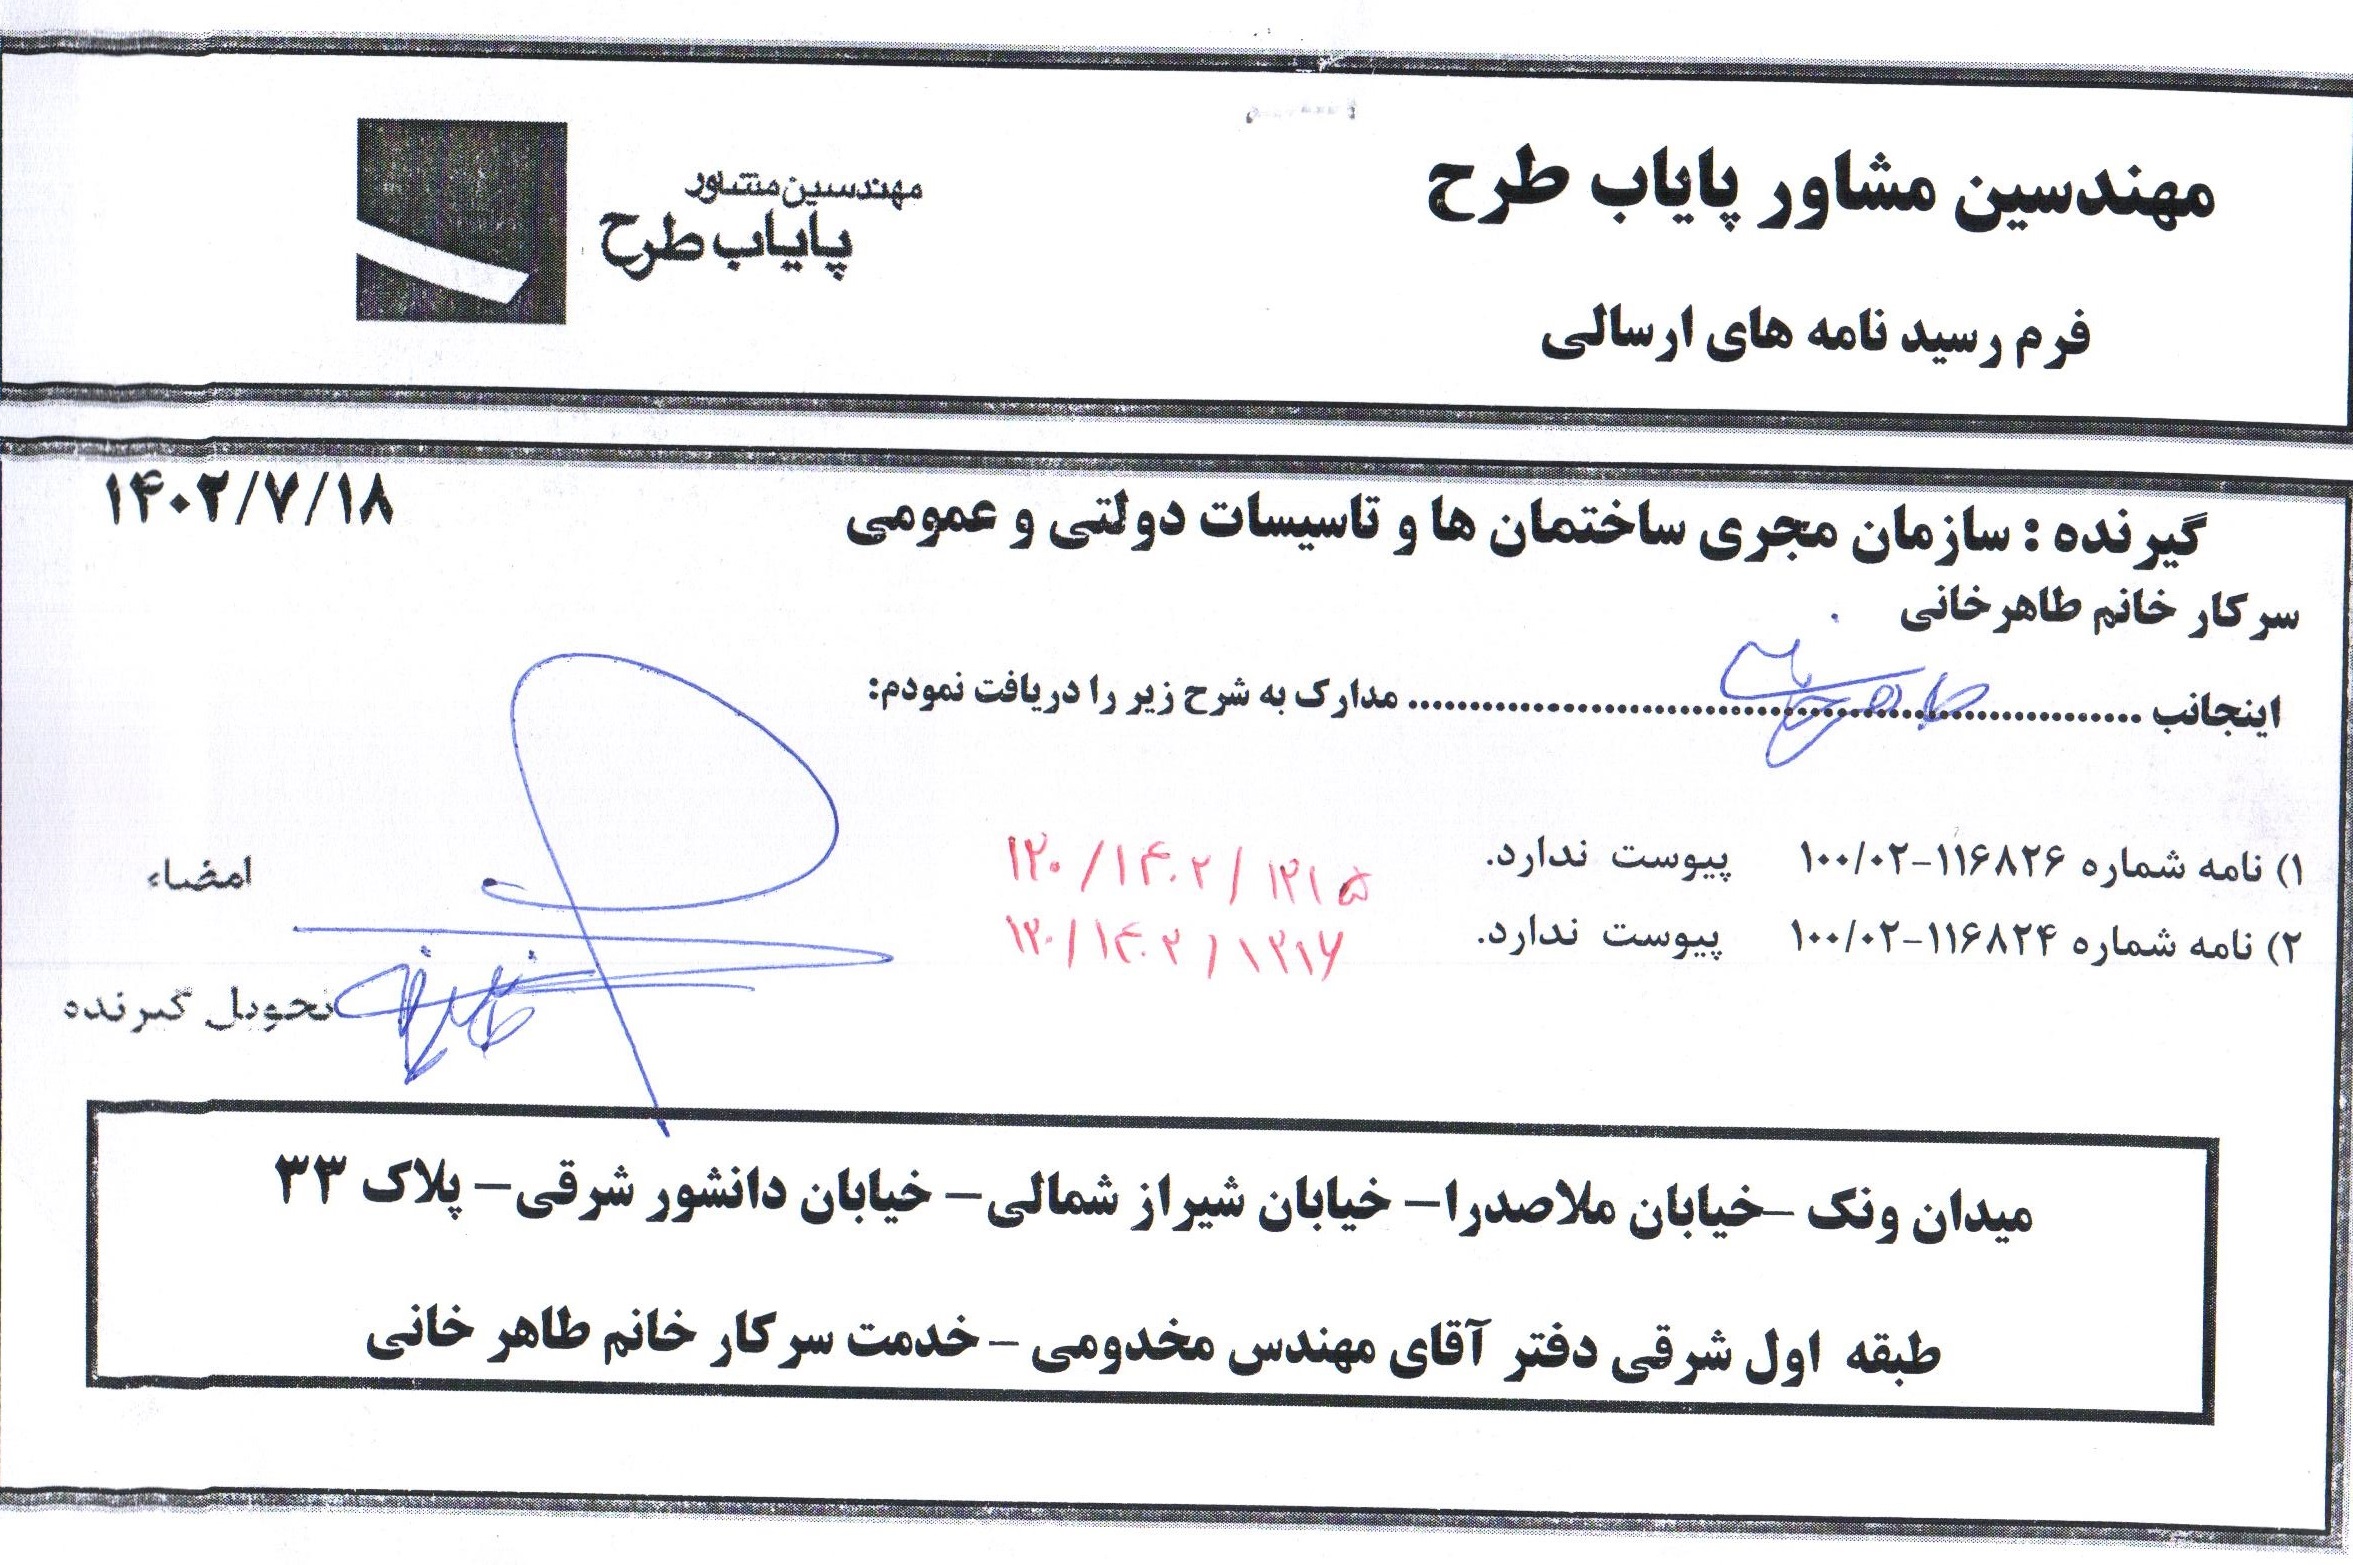 مهندسین مشاور پایاب طرح
مهندسین مشاور
پایاب طرح
فرم رسید نامه های ارسالی
۱۴۰۲/۷/۱۸
گیرنده : سازمان مجری ساختمان ها و تاسیسات دولتی و عمومی
سرکار خانم طاهرخانی
اینجانب ........ طاهرخانی ........ مدارک به شرح زیر را دریافت نمودم:
۱) نامه شماره ۱۱۶۸۲۶-۱۰۰/۰۲ پیوست ندارد. ۱۲۰/۱۴۰۲/۱۲۱۵
امضاء
۲) نامه شماره ۱۱۶۸۲۴-۱۰۰/۰۲ پیوست ندارد. ۱۲۰/۱۴۰۲/۱۲۱۶
تحویل گیرنده
میدان ونک –خیابان ملاصدرا– خیابان شیراز شمالی– خیابان دانشور شرقی– پلاک ۳۳
طبقه اول شرقی دفتر آقای مهندس مخدومی – خدمت سرکار خانم طاهر خانی